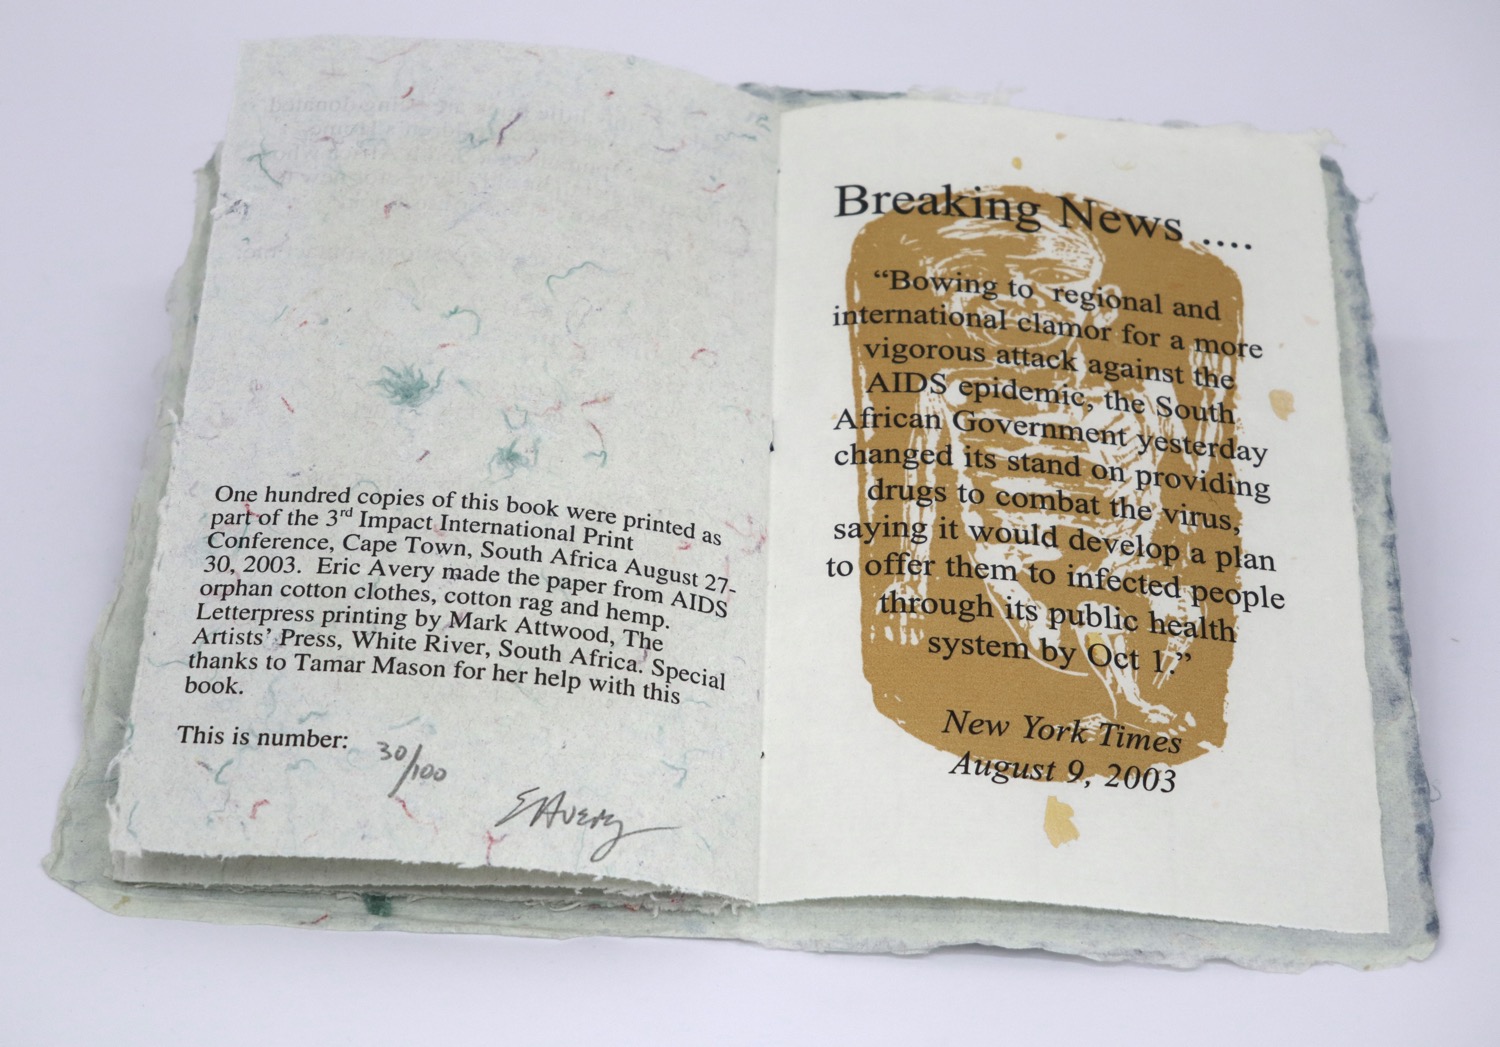 One hundred copies of this book were printed as
part of the 3rd Impact International Print
Conference, Cape Town, South Africa August 27-
30, 2003. Eric Avery made the paper from AIDS
orphan cotton clothes, cotton rag and hemp.
Letterpress printing by Mark Attwood, The
Artists' Press, White River, South Africa. Special
thanks to Tamar Mason for her help with this
book.
This is number: 30/100
EAvery
Breaking News ....
“Bowing to regional and
international clamor for a more
vigorous attack against the
AIDS epidemic, the South
African Government yesterday
changed its stand on providing
drugs to combat the virus,
saying it would develop a plan
to offer them to infected people
through its public health
system by Oct 1.”
New York Times
August 9, 2003